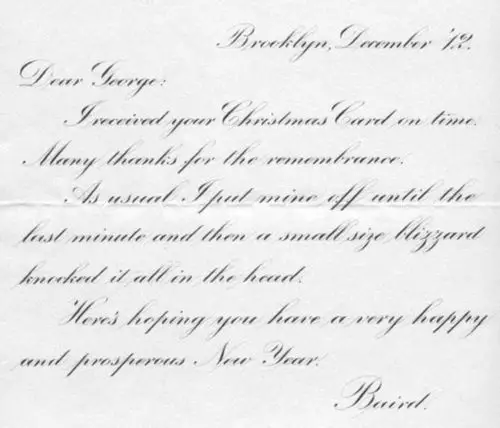 Brooklyn, December '12.
Dear George:
I received your Christmas Card on time.
Many thanks for the remembrance.
As usual I put mine off until the
last minute and then a small size blizzard
knocked it all in the head.
Here's hoping you have a very happy
and prosperous New Year.
Baird.